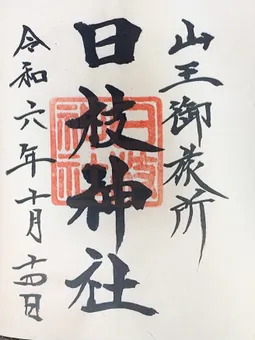 山王御旅所
日枝神社
令和六年十月十四日